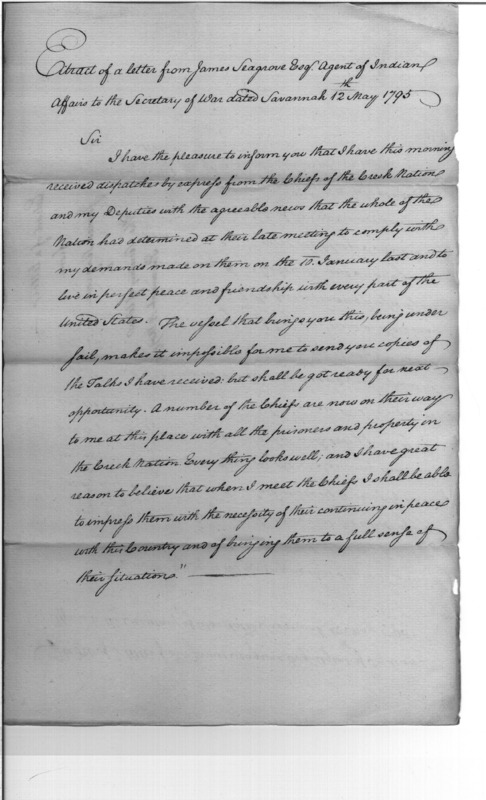 Extract of a letter from James Seagrove Esqr. Agent of Indian
Affairs to the Secretary of War dated Savannah 12th May 1795
Sir
I have the pleasure to inform you that I have this morning
received dispatches by express from the Chiefs of the Creek Nation
and my Deputies with the agreeable news that the whole of the
Nation had determined at their late meeting to comply with
my demands made on them on the 10. January last and to
live in perfect peace and friendship with every part of the
United States. The vessel that brings you this, being under
sail, makes it impossible for me to send you copies of
the Talks I have received but shall be got ready for next
opportunity. A number of the Chiefs are now on their way
to me at this place with all the prisoners and property in
the Creek Nation Every thing looks well; and I have great
reason to believe that when I meet the Chiefs I shall be able
to impress them with the necessity of their continuing in peace
with this Country and of bringing them to a full sense of
their situation."